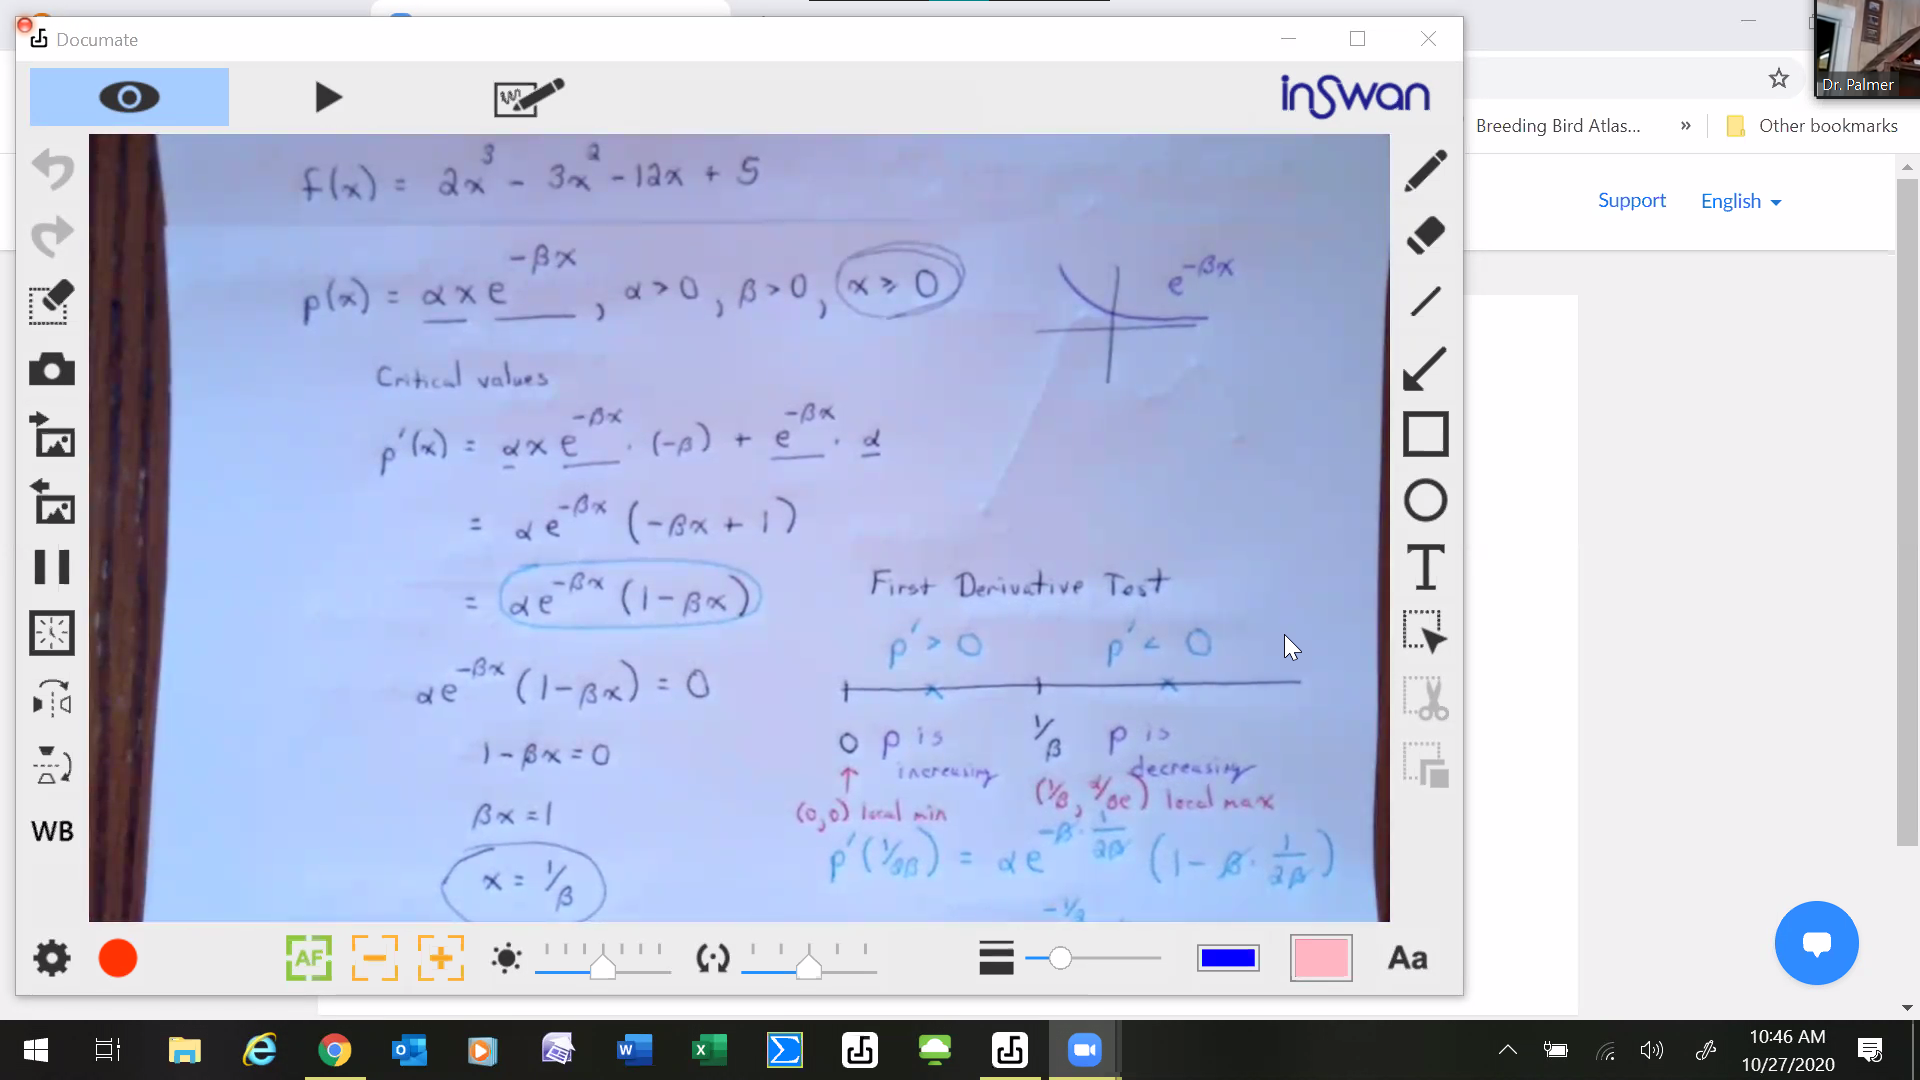 Documate
Dr. Palmer
inswan
Breeding Bird Atlas...
»
Other bookmarks
Support
English
f(x) = 2x³ - 3x² - 12x + 5
p(x) = αx e^{-βx}, α > 0, β > 0, x ≥ 0
e^{-βx}
Critical values
p'(x) = αx e^{-βx} · (-β) + e^{-βx} · α
= αe^{-βx} (-βx + 1)
= αe^{-βx} (1 - βx)
First Derivative Test
p' > 0
p' < 0
αe^{-βx} (1 - βx) = 0
0 p is increasing
1/β p is decreasing
1 - βx = 0
(0,0) local min
(1/β, α/βe) local max
βx = 1
p'(1/2β) = αe^{-β · 1/2β} (1 - β · 1/2β)
x = 1/β
-1/2
WB
T
AF
Aa
10:46 AM
10/27/2020